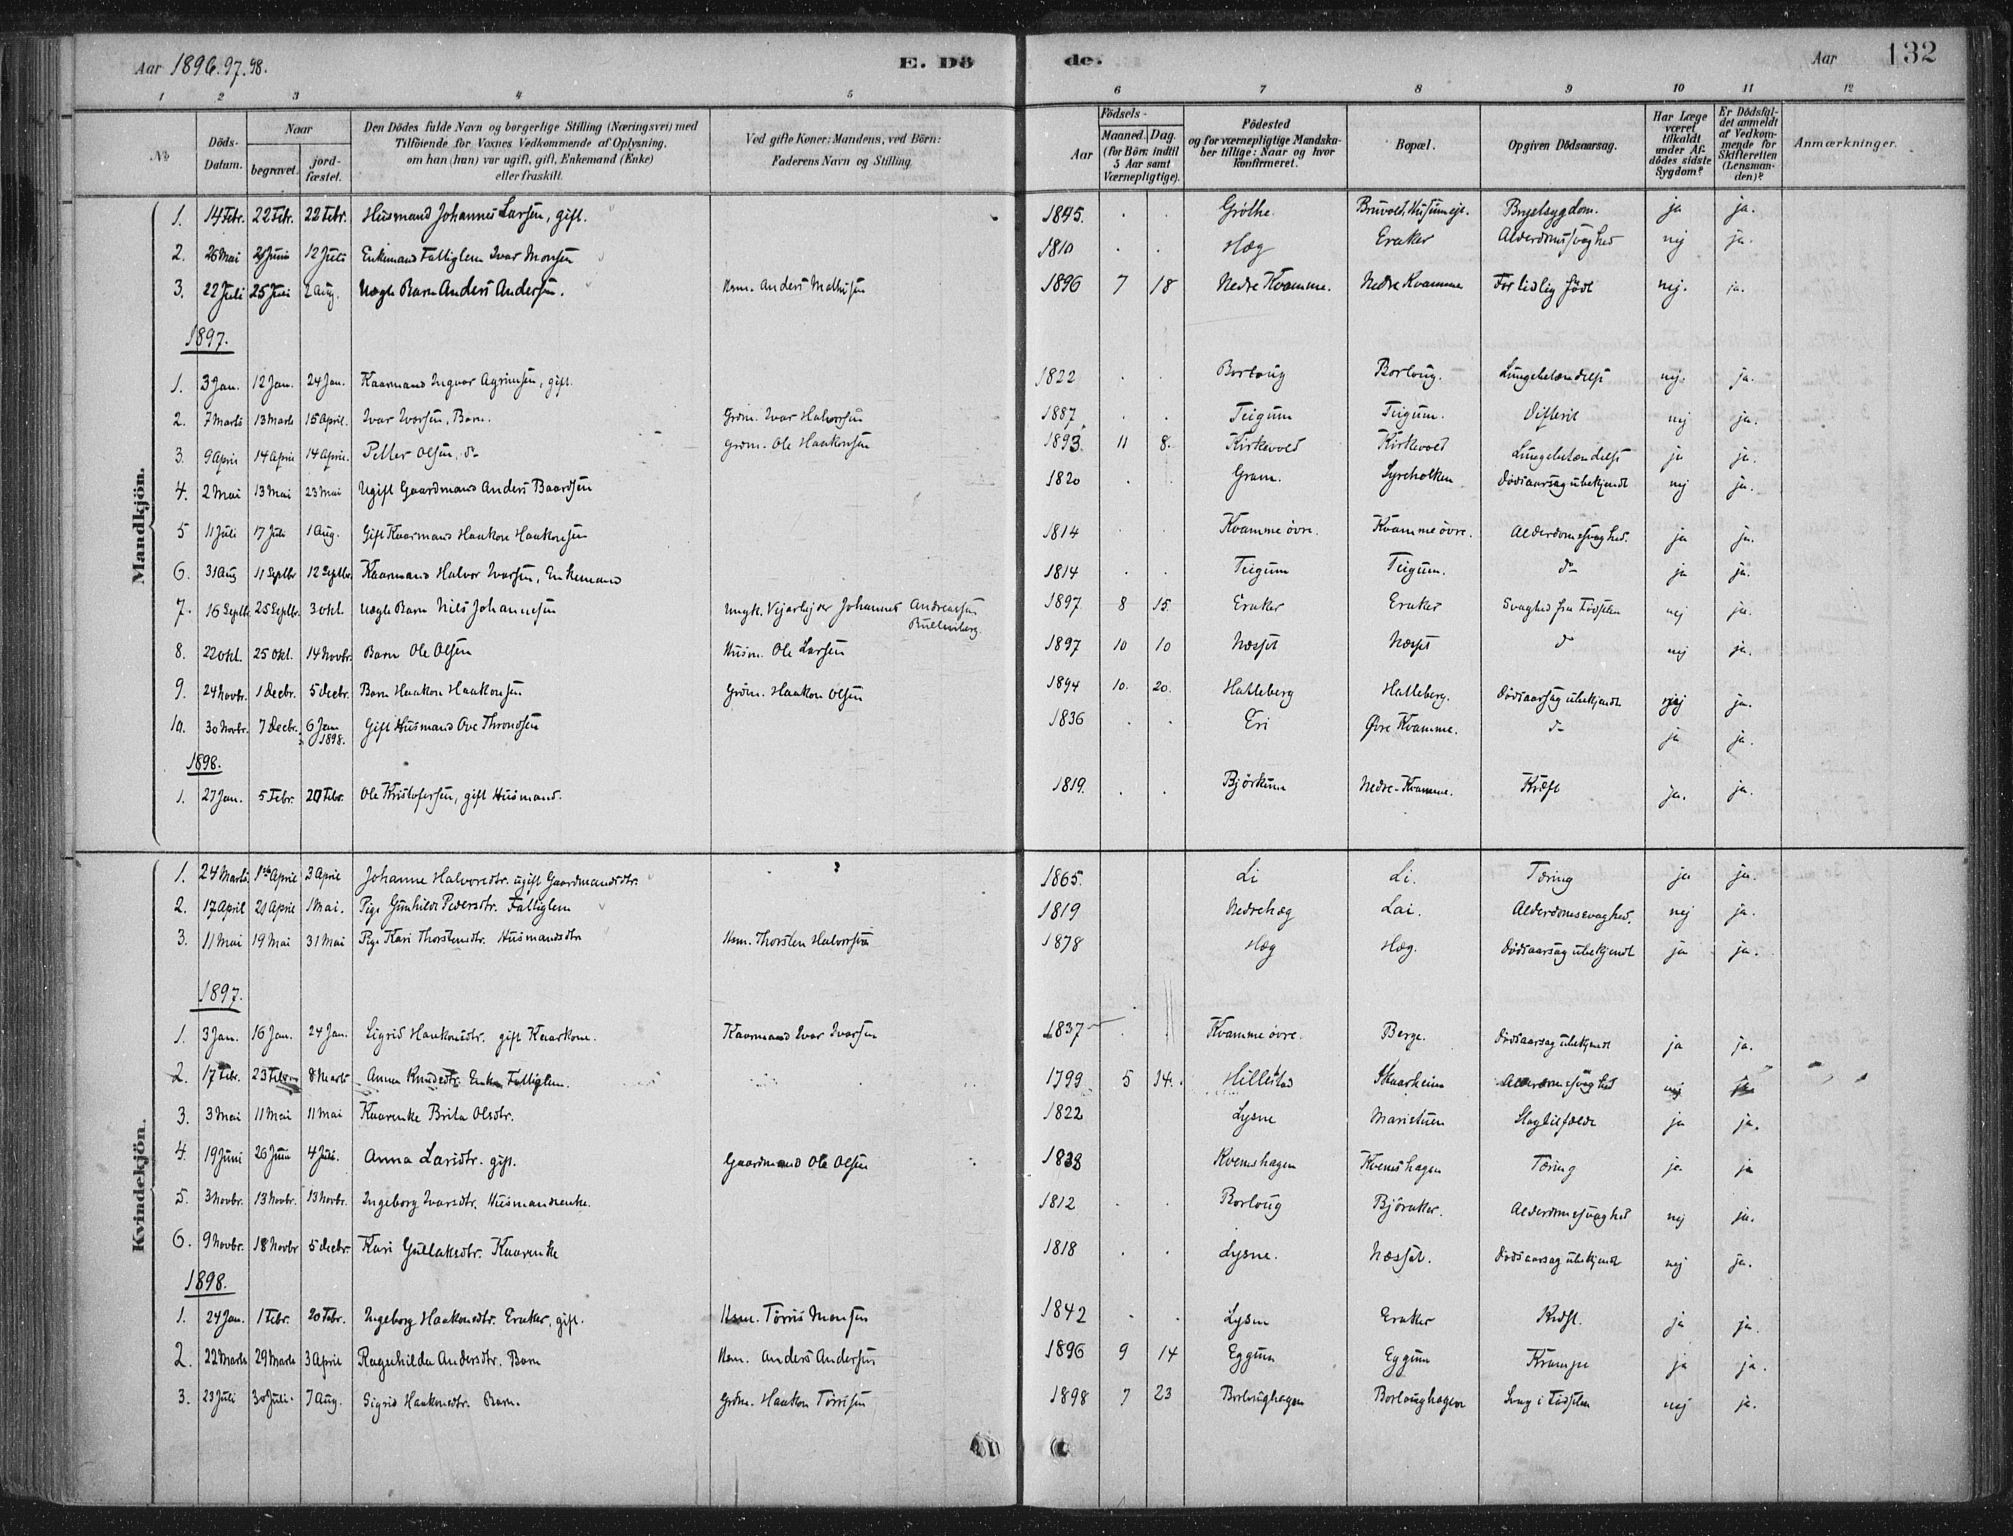 Aar 1896.97.98.
E. Dö
de.
Aar
132
1 2 3 4 5 6 7 8 9 10 11 12
No
Döds-Datum.
Naar
begravet.
jord-fæstet.
Den Dödes fulde Navn og borgerlige Stilling (Næringsvei) med
Tilföiende for Voxnes Vedkommende af Oplysning,
om han (hun) var ugift, gift, Enkemand (Enke)
eller fraskilt.
Ved gifte Koner: Mandens, ved Börn:
Faderens Navn og Stilling.
Födsels-
Aar
Maaned. Dag.
(for Börn indtil
5 Aar samt
Værnepligtige).
Födested
og for værnepligtige Mandska-
ber tillige: Naar og hvor
konfirmeret.
Bopæl.
Opgiven Dödsaarsag.
Har Læge
været
tilkaldt
under Af-
dödes sidste
Sygdom?
Er Dödsfal-
det anmeldt
af Vedkom-
mende for
Skifteretten
(Lensman-
den)?
Anmærkninger.
Mandkjön.
1. 14 Febr. 22 Febr. 22 Febr. Husmand Johannes Larsen, gift. 1845. Grøthe. Bruvold, Husumeje. Brystsygdom. ja ja.
2. 26 Mai Juni 12 Juli Enkemand Fattiglem Ivar Monsen 1810 Hæg Eraker Alderdomssvaghed nej ja.
3. 22 Juli 25 Juli 2 Aug. Uægte Barn Anders Andersen. Hsm. Anders Mathisen 1896 7 18 Nedre Kvamme. Nedre Kvamme For tidlig født nej. ja.
1897.
1. 3 Jan. 12 Jan. 24 Jan. Kaarmand Ingvar Agrimsen, gift. 1822 Borloug Borloug. Lungebetændelse nej. ja.
2. 7 Marts 13 Marts 15 April. Ivar Ivarsen, Barn. Grdm. Ivar Halvorsen 1887 Teigum Teigum. Difterit nej ja.
3. 9 April 14 April 14 April. Petter Olsen, do Grdm. Ole Haakonsen 1893. 11 8. Kirkevold Kirkevold Lungebetændelse ja ja.
4. 2 Mai 13 Mai 23 Mai Ugift Gaardmand Anders Baardsen 1820 Gram. Lyreholken Dødsaarsag ubekjendt nej ja.
5 11 Juli 17 Juli 1 Aug. Gift Kaarmand Haakon Haakonsen 1814 Kvamme øvre. Kvamme øvre. Alderdomssvaghed. ja ja.
6. 31 Aug 11 Septbr 12 Septbr. Kaarmand Halvor Ivarsen, Enkemand 1814 Teigum Teigum. do ja ja.
7. 16 Septbr. 25 Septbr. 3 Okt. Uægte Barn Nils Johannesen Ungk. Vejarbejder Johannes Andreassen 1897 8 15. Eraker Eraker Svaghed fra Fødselen nej ja.
8. 22 Okt. 25 Okt. 14 Novbr. Barn Ole Olsen Husm. Ole Larsen 1897 10 10 Næsset Næsset do nej ja.
9. 24 Novbr. 1 Decbr. 5 Decbr. Barn Haakon Haakonsen Grdm. Haakon Olsen 1894 10. 20. Hatleberg Hatleberg. Dødsaarsag ubekjendt nej ja.
10. 30 Novbr. 7 Decbr. 6 Jan 1898. Gift Husmand Ove Throndsen 1836 Eri Øvre Kvamme. do ja ja.
1898.
1. 27 Jan. 5 Febr. 20 Febr. Ole Kristofersen, gift Husmand. 1819. Bjørkum Nedre-Kvamme. Kræft ja. ja.
Kvindekjön.
1. 24 Marts 1ste April 3 April Johanne Halvorsdtr. ugift Gaardmandsdtr. 1865. Li Li. Tæring ja ja.
2. 17 April 21 April 1 Mai. Pige Gunhilde Pedersdtr. Fattiglem 1819 Nedrehæg Lai. Alderdomssvaghed. nej ja.
3. 11 Mai 19 Mai 31 Mai Pige Kari Thorstensdtr. Husmandsdtr Hsm. Thorsten Halvorsen 1878 Hæg Hæg. Dødsaarsag ubekjendt ja ja.
1897.
1. 3 Jan. 16 Jan. 24 Jan. Sigrid Haakonsdtr. gift Kaarkone. Kaarmand Ivar Ivarsen 1837 Kvamme øvre. Berge. Dødsaarsag ubekjendt ja ja.
2. 17 Febr. 23 Febr. 8 Marts Anna Knudsdtr. Enke Fattiglem. 1799 5 14. Hillestad Skaarheim Alderdomssvaghed nej ja
3. 3 Mai 11 Mai 11 Mai Kaarenke Brita Olsdtr. 1822 Lysne Maristuen Slagtilfælde ja ja.
4. 19 Juni 26 Juni 4 Juli. Anna Larsdtr. gift. Gaardmand Ole Olsen 1838 Kvemshagen Kvemshagen Tæring ja ja
5. 3 Novbr. 13 Novbr. 13 Novbr. Ingeborg Ivarsdtr. Husmandsenke. 1812 Borloug Bjøraker. Alderdomssvaghed nej ja.
6. 9 Novbr. 18 Novbr 5 Decbr. Kari Gullaksdtr. Kaarenke 1818 Lysne. Næsset. Dødsaarsag ubekjendt nej ja.
1898.
1. 24 Jan. 1 Febr. 20 Febr. Ingeborg Haakonsdtr. Eraker, gift. Hsm. Tørris Monsen 1842 Lysne Eraker Kræft. ja ja.
2. 22 Marts 29 Marts 3 April Ragnhilda Andersdtr. Barn Hsm. Anders Andersen 1896 9 14 Eggum Eggum Krampe ja ja.
3. 23 Juli 30 Juli. 7 Aug. Sigrid Haakonsdtr. Barn. Grdm. Haakon Tørrisen 1898 7 23 Borloughagen Borloughagen Svag i Fødselen nej ja.